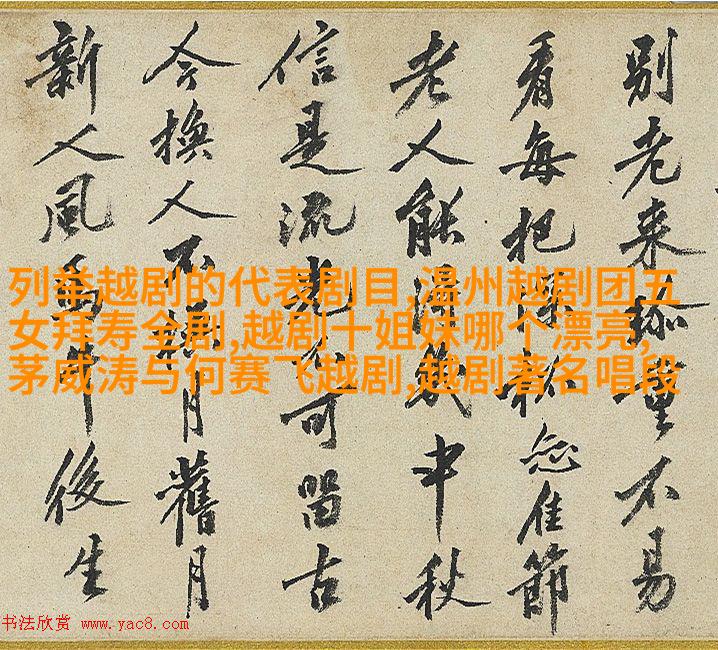 別老來重不易
看每把深杯佳節
老人能得幾中秋
信是流光不可留古
今換人不換月舊月
新人風馬牛後生
列举越剧的代表剧目,温州越剧团五
女拜寿全剧,越剧十姐妹哪个漂亮,
茅威涛与何赛飞越剧,越剧著名唱段
书法欣赏 www.yac8.com